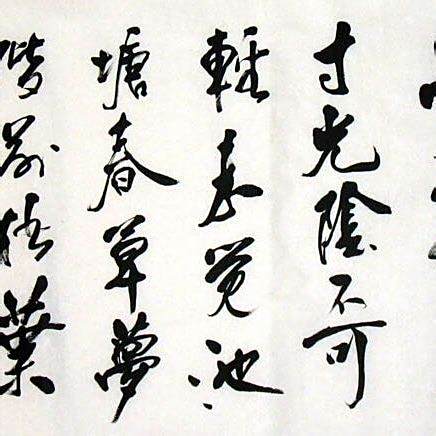 寸光陰不可
輕未覺池
塘春草夢
階前梧葉